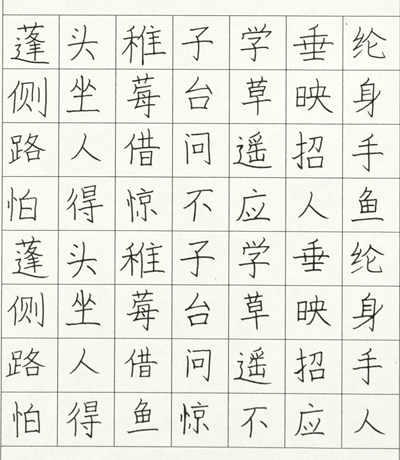 蓬头稚子学垂纶
侧坐莓台草映身
路人借问遥招手
怕得惊不应人鱼
蓬头稚子学垂纶
侧坐莓台草映身
路人借问遥招手
怕得鱼惊不应人